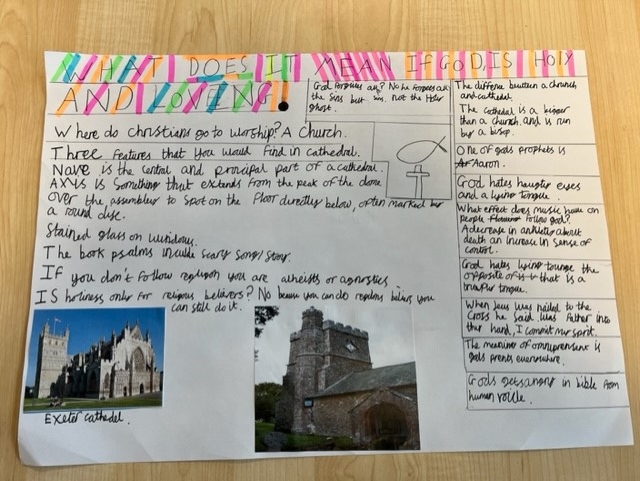 WHAT DOES IT MEAN IF GOD, IS HOLY
AND LOVEING
God forgives all? No he forgives all
the sins but sins. Not the Holy
Ghost.
Where do christians go to worship? A Church.
Three features that you would find in cathedral.
Nave is the central and principal part of a cathedral.
AXUS is something that extends from the peak of the dome
over the assembler to spot on the floor directly below, often marked by
a round disc.
Stained glass on windows.
The book psalms include scary song/story.
If you don't follow religion you are atheists or agnostics
Is holiness only for religious believers? No you can do
can still do it.
Exeter cathedel.
The diffence between a church
and cathedel.
The cathedel is a bigger
than a church and is run
by a bisop.
One of gods prophets is
Aaron.
God hates haughty eyes
and a lying tongue.
What effect does music have on
people follow god?
A decrease in about
death an increase in sense of
control.
God hates lying tounge the
opposite of is that is a
truthful tongue.
When Jesus was nailed to the
cross he said was father into
thy hand, I commit my sprit.
The meaning of omnipresent is
gods everywhere.
Gods gets angry in bible from
human